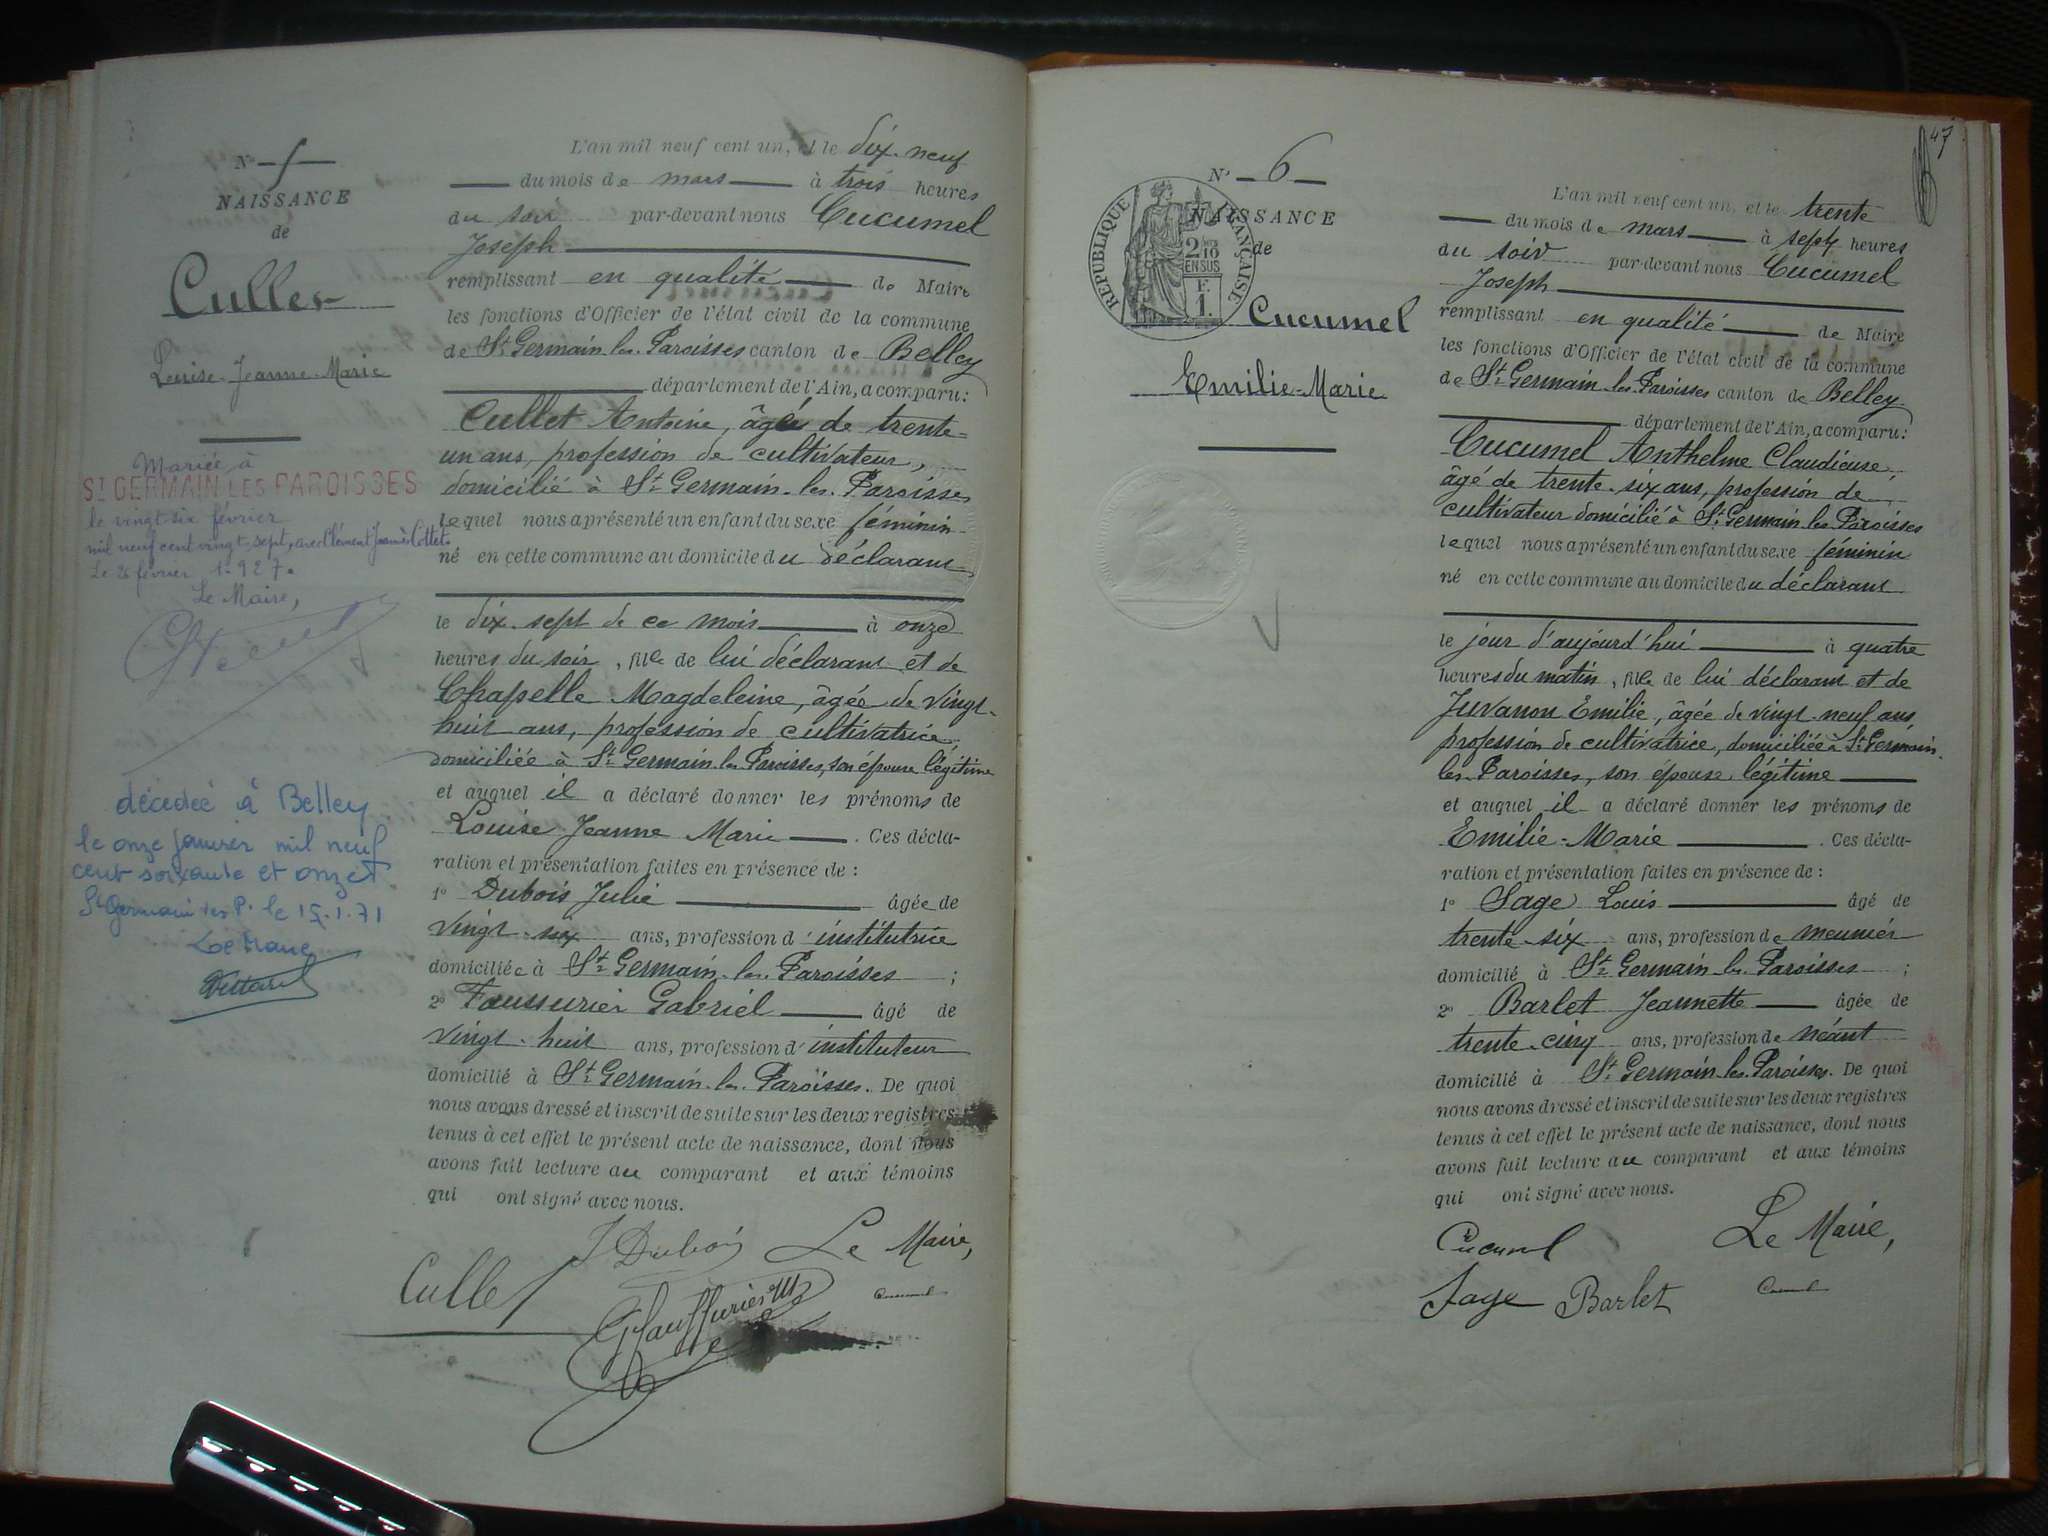 N° 5
NAISSANCE
de
Cullet
Louise-Jeanne-Marie
Mariée à
ST GERMAIN LES PAROISSES
le vingt-six février
mil neuf cent vingt-sept, avec Clément Collet
Le 26 février 1.927.
Le Maire,
décédée à Belley
le onze janvier mil neuf
cent soixante et onze
St Germain les P. le 15.1.71
Le Maire
L'an mil neuf cent un, et le dix-neuf
du mois de mars à trois heures
du soir par-devant nous Cucumel
Joseph
remplissant en qualité de Maire
les fonctions d'Officier de l'état civil de la commune
de St Germain-les-Paroisses canton de Belley
département de l'Ain, a comparu:
Cullet Antoine, âgé de trente-
un ans, profession de cultivateur,
domicilié à St Germain-les-Paroisses
lequel nous a présenté un enfant du sexe féminin
né en cette commune au domicile du déclarant
le dix-sept de ce mois à onze
heures du soir, fille de lui déclarant et de
Chapelle Magdeleine, âgée de vingt-
huit ans, profession de cultivatrice
domiciliée à St Germain-les-Paroisses, son épouse légitime
et auquel il a déclaré donner les prénoms de
Louise Jeanne Marie. Ces décla-
ration et présentation faites en présence de :
1° Dubois Julie âgée de
vingt-six ans, profession d'institutrice
domiciliée à St Germain-les-Paroisses ;
2° Faussurier Gabriel âgé de
vingt-huit ans, profession d'instituteur
domicilié à St Germain-les-Paroisses. De quoi
nous avons dressé et inscrit de suite sur les deux registres
tenus à cet effet le présent acte de naissance, dont nous
avons fait lecture au comparant et aux témoins
qui ont signé avec nous.
J Dubois Le Maire,
Cullet
GFaussurier
Cucumel
47
N° 6
NAISSANCE
de
REPUBLIQUE FRANÇAISE
2/10
EN SUS
F.
1.
Cucumel
Emilie-Marie
L'an mil neuf cent un, et le trente
du mois de mars à sept heures
du soir par-devant nous Cucumel
Joseph
remplissant en qualité de Maire
les fonctions d'Officier de l'état civil de la commune
de St Germain-les-Paroisses canton de Belley
département de l'Ain, a comparu:
Cucumel Anthelme Claudieuse,
âgé de trente-six ans, profession de
cultivateur domicilié à St Germain-les-Paroisses
lequel nous a présenté un enfant du sexe féminin
né en cette commune au domicile du déclarant
le jour d'aujourd'hui à quatre
heures du matin, fille de lui déclarant et de
Juvanon Emilie, âgée de vingt-neuf ans,
profession de cultivatrice, domiciliée à St Germain-
les-Paroisses, son épouse légitime
et auquel il a déclaré donner les prénoms de
Emilie-Marie. Ces décla-
ration et présentation faites en présence de :
1° Sage Louis âgé de
trente-six ans, profession de meunier
domicilié à St Germain-les-Paroisses ;
2° Barlet Jeannette âgée de
trente-cinq ans, profession de néant
domicilié à St Germain-les-Paroisses. De quoi
nous avons dressé et inscrit de suite sur les deux registres
tenus à cet effet le présent acte de naissance, dont nous
avons fait lecture au comparant et aux témoins
qui ont signé avec nous.
Cucumel Le Maire,
Sage Barlet Cucumel